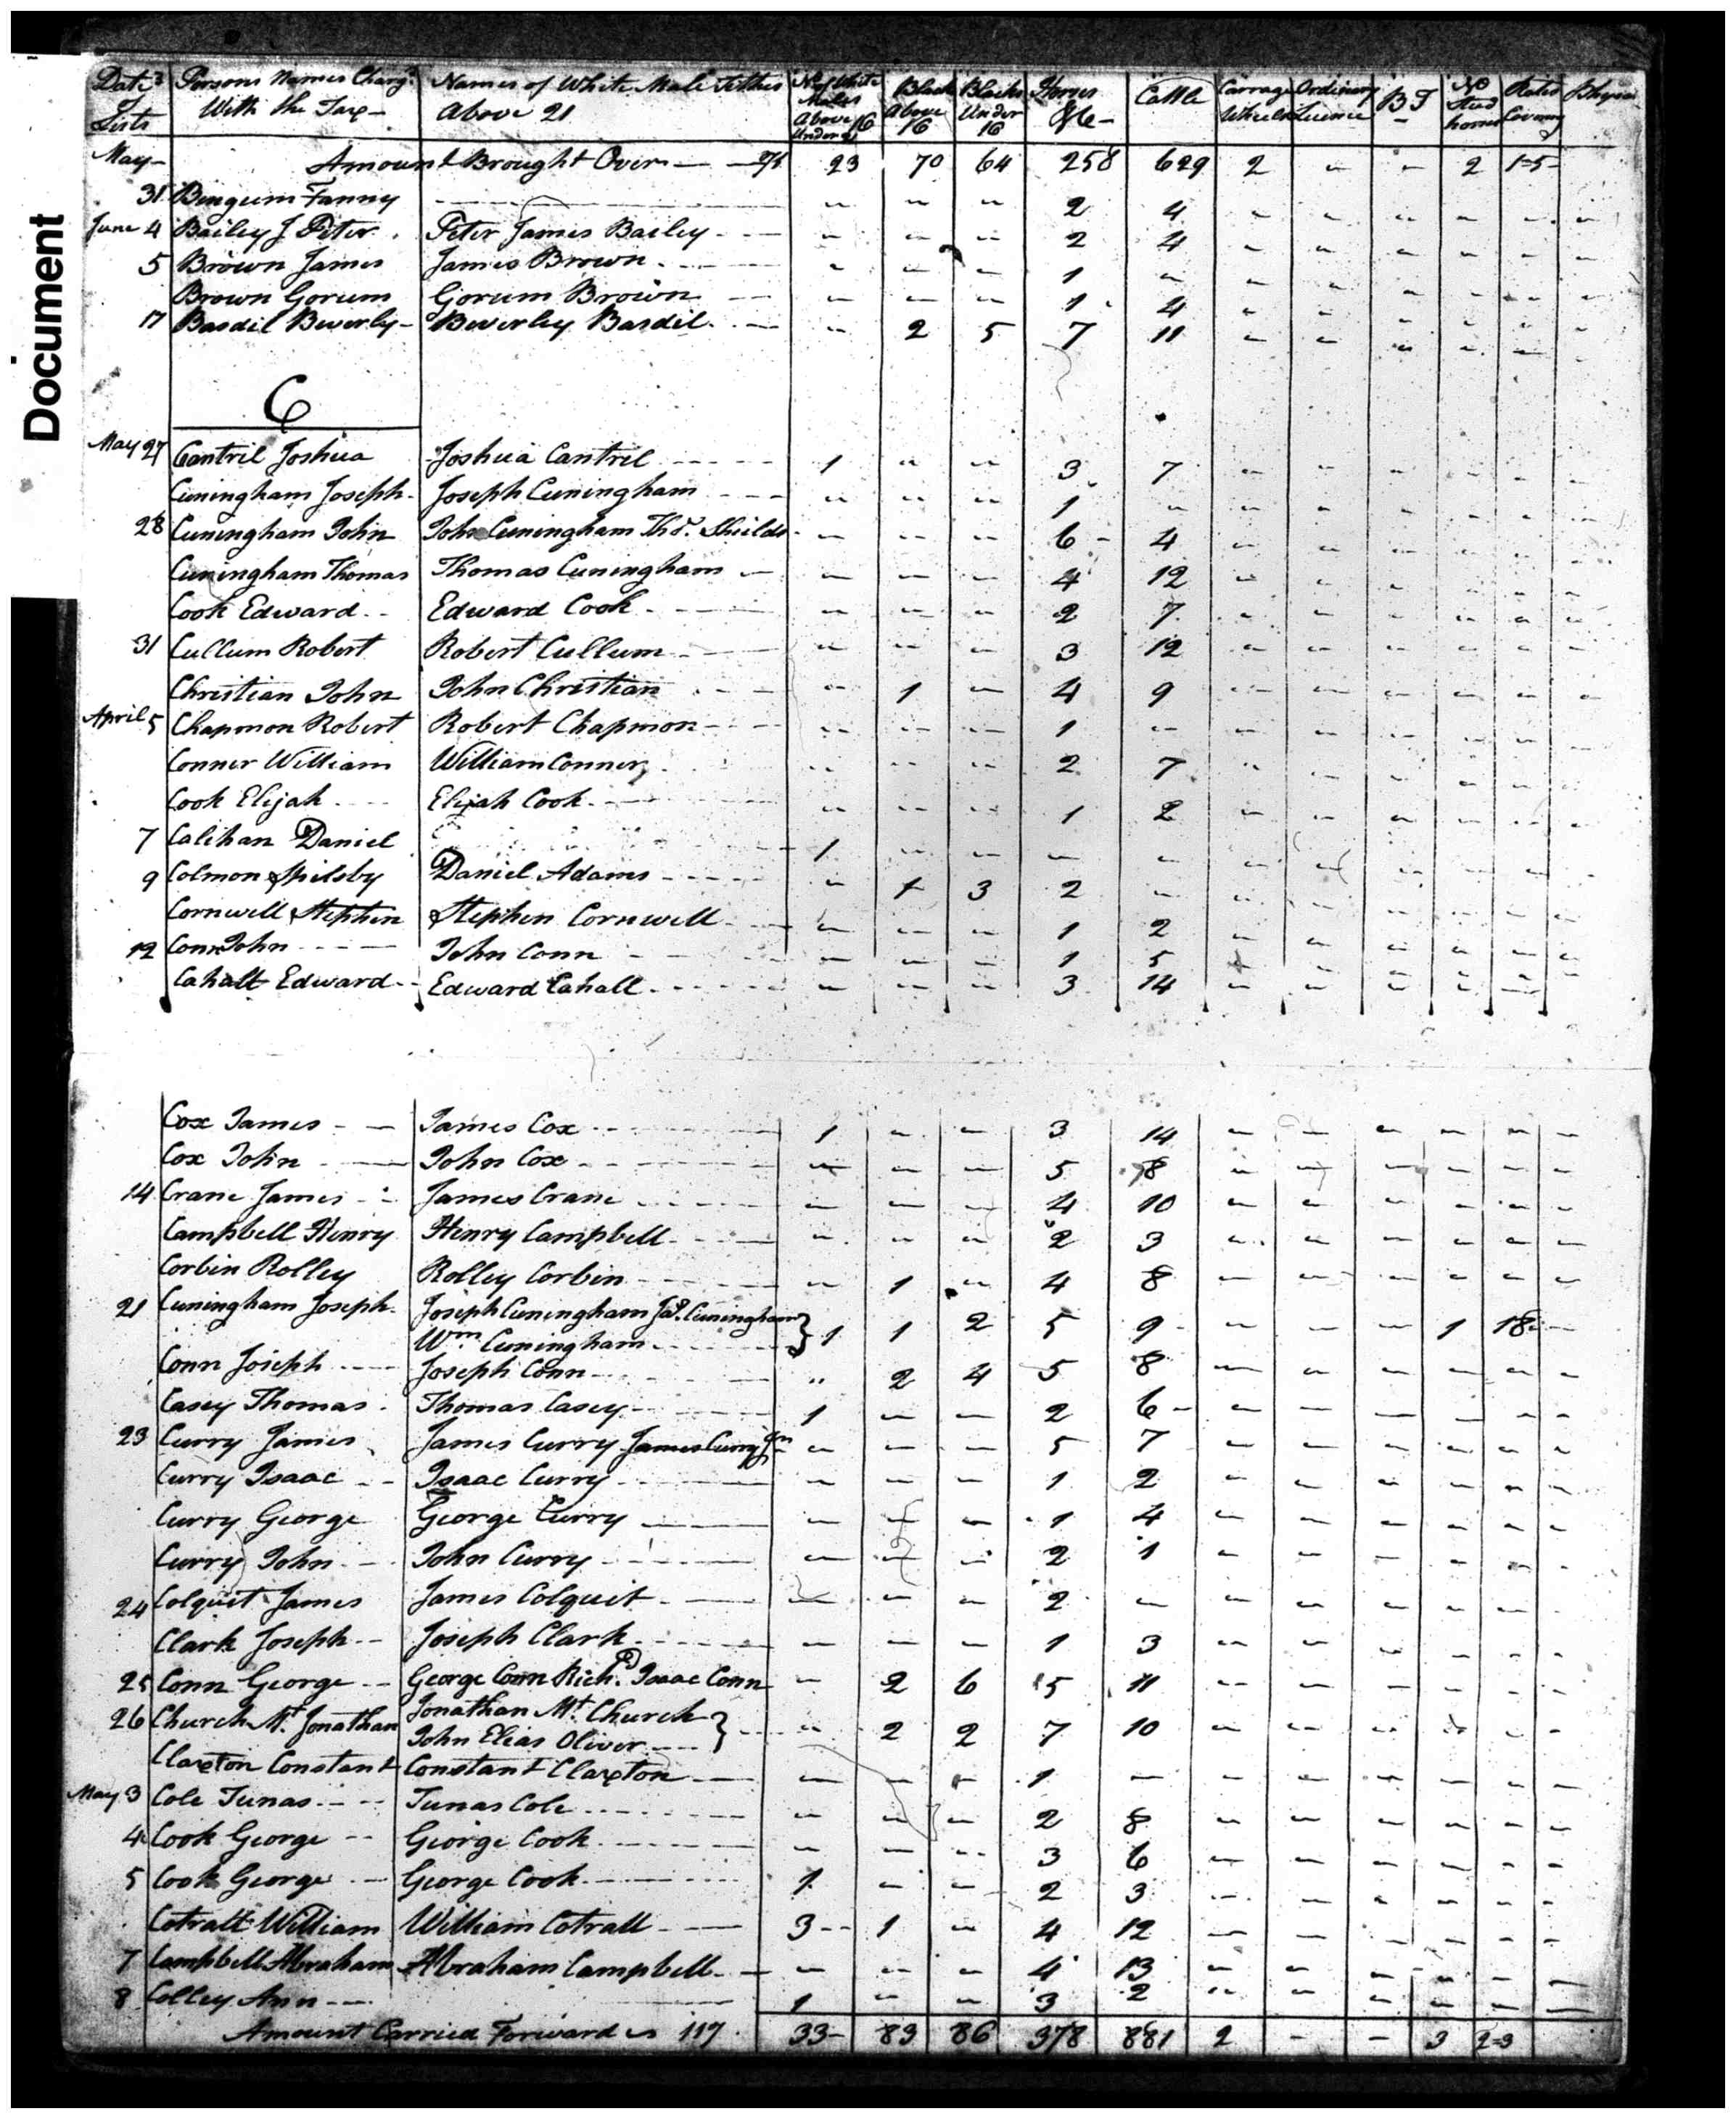 Document
Dates of Lists Persons Names Charg'd With the Tax — Names of White Male Tithes Above 21 No of White Males Above 16 Under 21 Blacks Above 16 Blacks Under 16 Horses &c — Cattle Carriage Wheels Ordinary Licence B T — No Stud horses Rates Covering Physicians
May — Amount Brought Over — 23 70 64 258 629 2 - - 2 1=5-
31 Bingum Fanny 2 4
June 4 Bailey J Peter Peter James Bailey 2 4
5 Brown James James Brown 1 -
Brown Gorum Gorum Brown 1 4
17 Basdil Beverly - Beverley Basdil 2 5 7 11
C
May 27 Cantril Joshua Joshua Cantril 1 - - 3 7
Cuningham Joseph - Joseph Cuningham 1 -
28 Cuningham John John Cuningham Thos. Shields 6 - 4
Cuningham Thomas Thomas Cuningham 4 12
Cook Edward Edward Cook 2 7
31 Cullum Robert Robert Cullum 3 12
Christian John John Christian - 1 - 4 9
April 5 Chapmon Robert Robert Chapmon 1 -
Conner William William Conner 2 7
Cook Elijah Elijah Cook 1 2
7 Calihan Daniel 1 - - - -
9 Colmon Spilsby Daniel Adams - 1 3 2 -
Cornwell Stephen Stephen Cornwell 1 2
12 Conn John John Conn 1 5
Cahall Edward Edward Cahall 3 14
Cox James James Cox 1 - - 3 14
Cox John John Cox 5 8
14 Crane James James Crane 4 10
Campbell Henry Henry Campbell 2 3
Corbin Rolley Rolley Corbin - 1 - 4 8
21 Cuningham Joseph Joseph Cuningham Jas. Cuningham
Wm Cuningham } 1 1 2 5 9 - - - 1 18
Conn Joseph Joseph Conn " 2 4 5 8
Casey Thomas Thomas Casey 1 - - 2 6
23 Curry James James Curry James Curry Jn 5 7
Curry Isaac Isaac Curry 1 2
Curry George George Curry 1 4
Curry John John Curry 2 1
24 Colquit James James Colquit 2 -
Clark Joseph Joseph Clark 1 3
25 Conn George George Conn Richd. Isaac Conn - 2 6 5 11
26 Church Mt. Jonathan Jonathan Mt. Church
John Elias Oliver } 2 2 7 10
Claxton Constant Constant Claxton 1 -
May 3 Cole Tunas Tunas Cole 2 8
4 Cook George George Cook 3 6
5 Cook George George Cook 1 - - 2 3
Cotrall William William Cotrall 3 - 1 - 4 12
7 Campbell Abraham Abraham Campbell 4 13
8 Colley Ann 1 - - 3 2
Amount Carried Forward is 117 33 - 83 86 378 881 2 - - 3 2=3